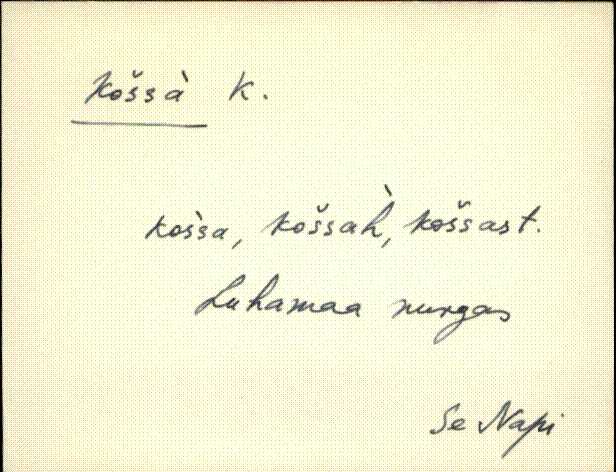 Koššà K.
košsa, koššah̀, koššast.
Luhamaa nurgas
Se Napi